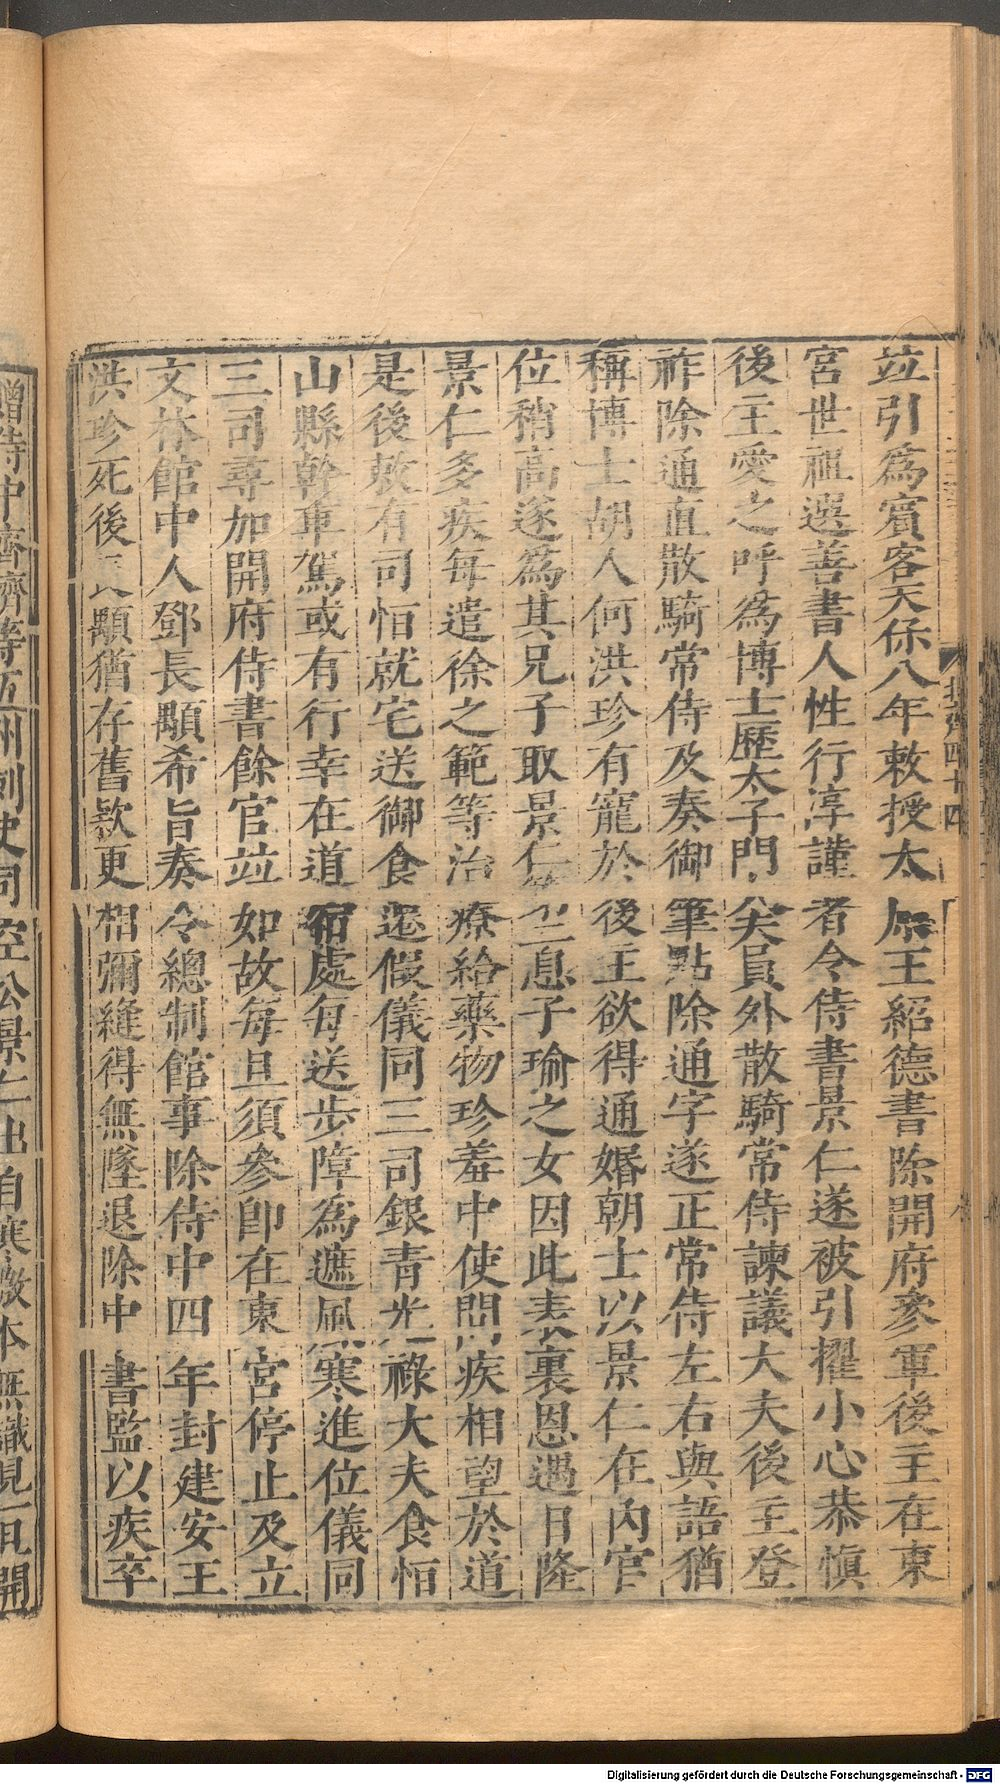 竝引爲賓客天保八年敕授太原王紹德書除開府參軍後主在東
宮世祖選善書人性行淳謹者令侍書景仁遂被引擢小心恭愼
後主愛之呼爲博士歷太子門大夫員外散騎常侍諫議大夫後主登
祚除通直散騎常侍及奏御筆點除通字遂正常侍左右與語猶
稱博士胡人何洪珍有寵於後主欲得通婚朝士以景仁在內官
位稍高遂爲其兄子取景仁第二息子瑜之女因此表裏恩遇日隆
景仁多疾每遣徐之範等治療給藥物珍羞中使問疾相望於道
是後敕有司恒就宅送御食還假儀同三司銀青光祿大夫食恒
山縣幹車駕或有行幸在道宿處每送步障爲遮風寒進位儀同
三司尋加開府侍書餘官竝如故每旦須參卽在東宮停止及立
文林館中人鄧長顒希旨奏令總制館事除侍中四年封建安王
洪珍死後長顒猶存舊款更相彌縫得無墜退除中書監以疾卒
贈侍中齊濟等五州刺史司空公景仁出自寒微本無識見一旦開
北齊四十四
八
Digitalisierung gefördert durch die Deutsche Forschungsgemeinschaft - DFG